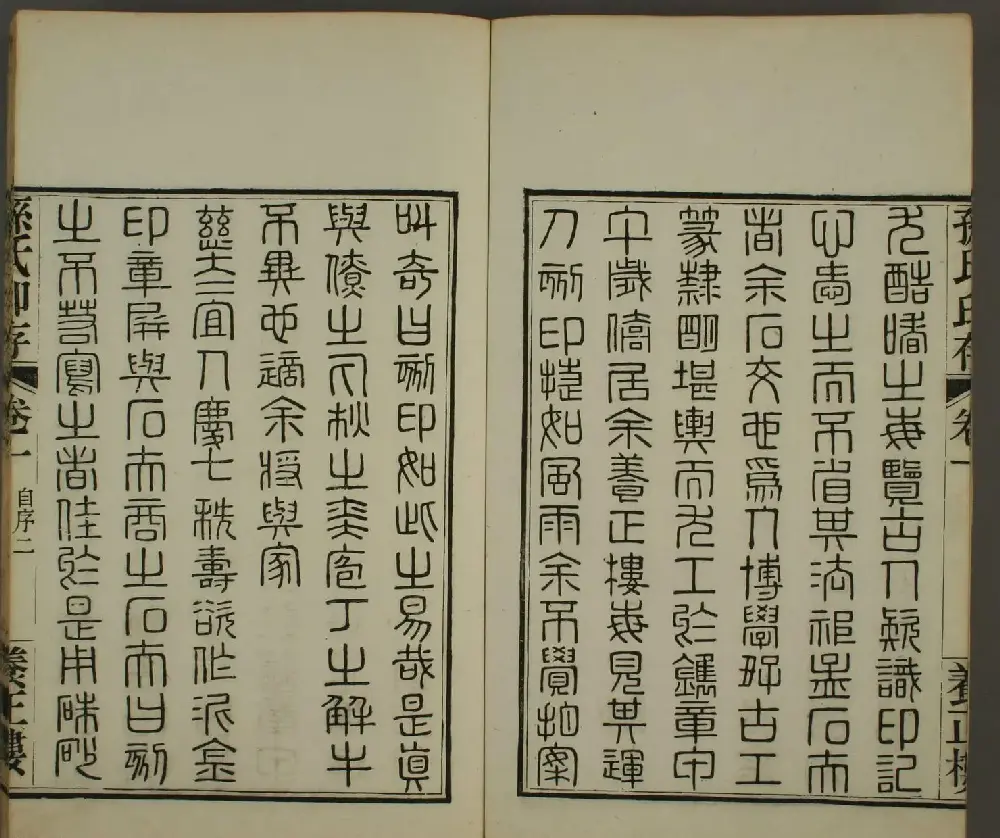 孫氏印存 卷一 養正樓
尤酷嗜之每覽古人款識印記
心志之而不省其法祖孟石
者余石交也為人博學好古工
篆隸明堪輿而尤工於鐫章甲
午歲僑居余養正樓每見其運
刀刻印捷如風雨余不覺拍案
叫奇曰刻印如此之易哉是真
與僚之丸秋之奕庖丁之解牛
不異也適余將與家
慈大宜人慶七秩壽欲作泥金
印章屏與石商之石曰刻
之不若寫之者佳於是用硃砂
孫氏印存 卷一 自序二 養正樓